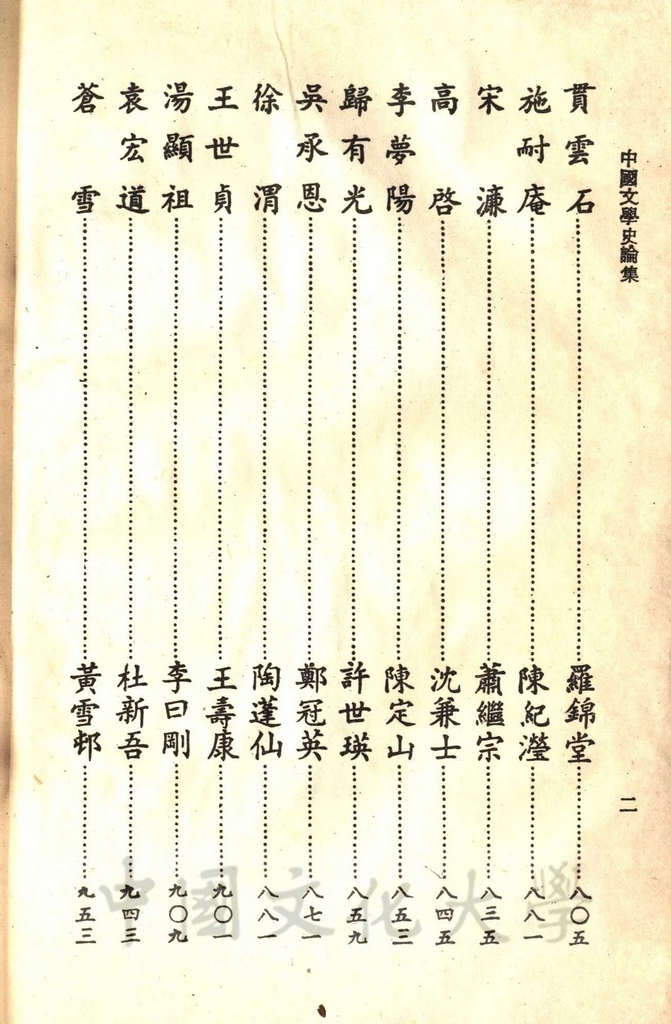 中國文學史論集
二
貫雲石……羅錦堂……八〇五
施耐庵……陳紀瀅……八八一
宋濂……蕭繼宗……八三五
高啓……沈兼士……八四五
李夢陽……陳定山……八五三
歸有光……許世瑛……八五九
吳承恩……鄭冠英……八七一
徐渭……陶蓬仙……八八一
王世貞……王壽康……九〇一
湯顯祖……李曰剛……九〇九
袁宏道……杜新吾……九四三
蒼雪……黃雪邨……九五三
中國文化大學